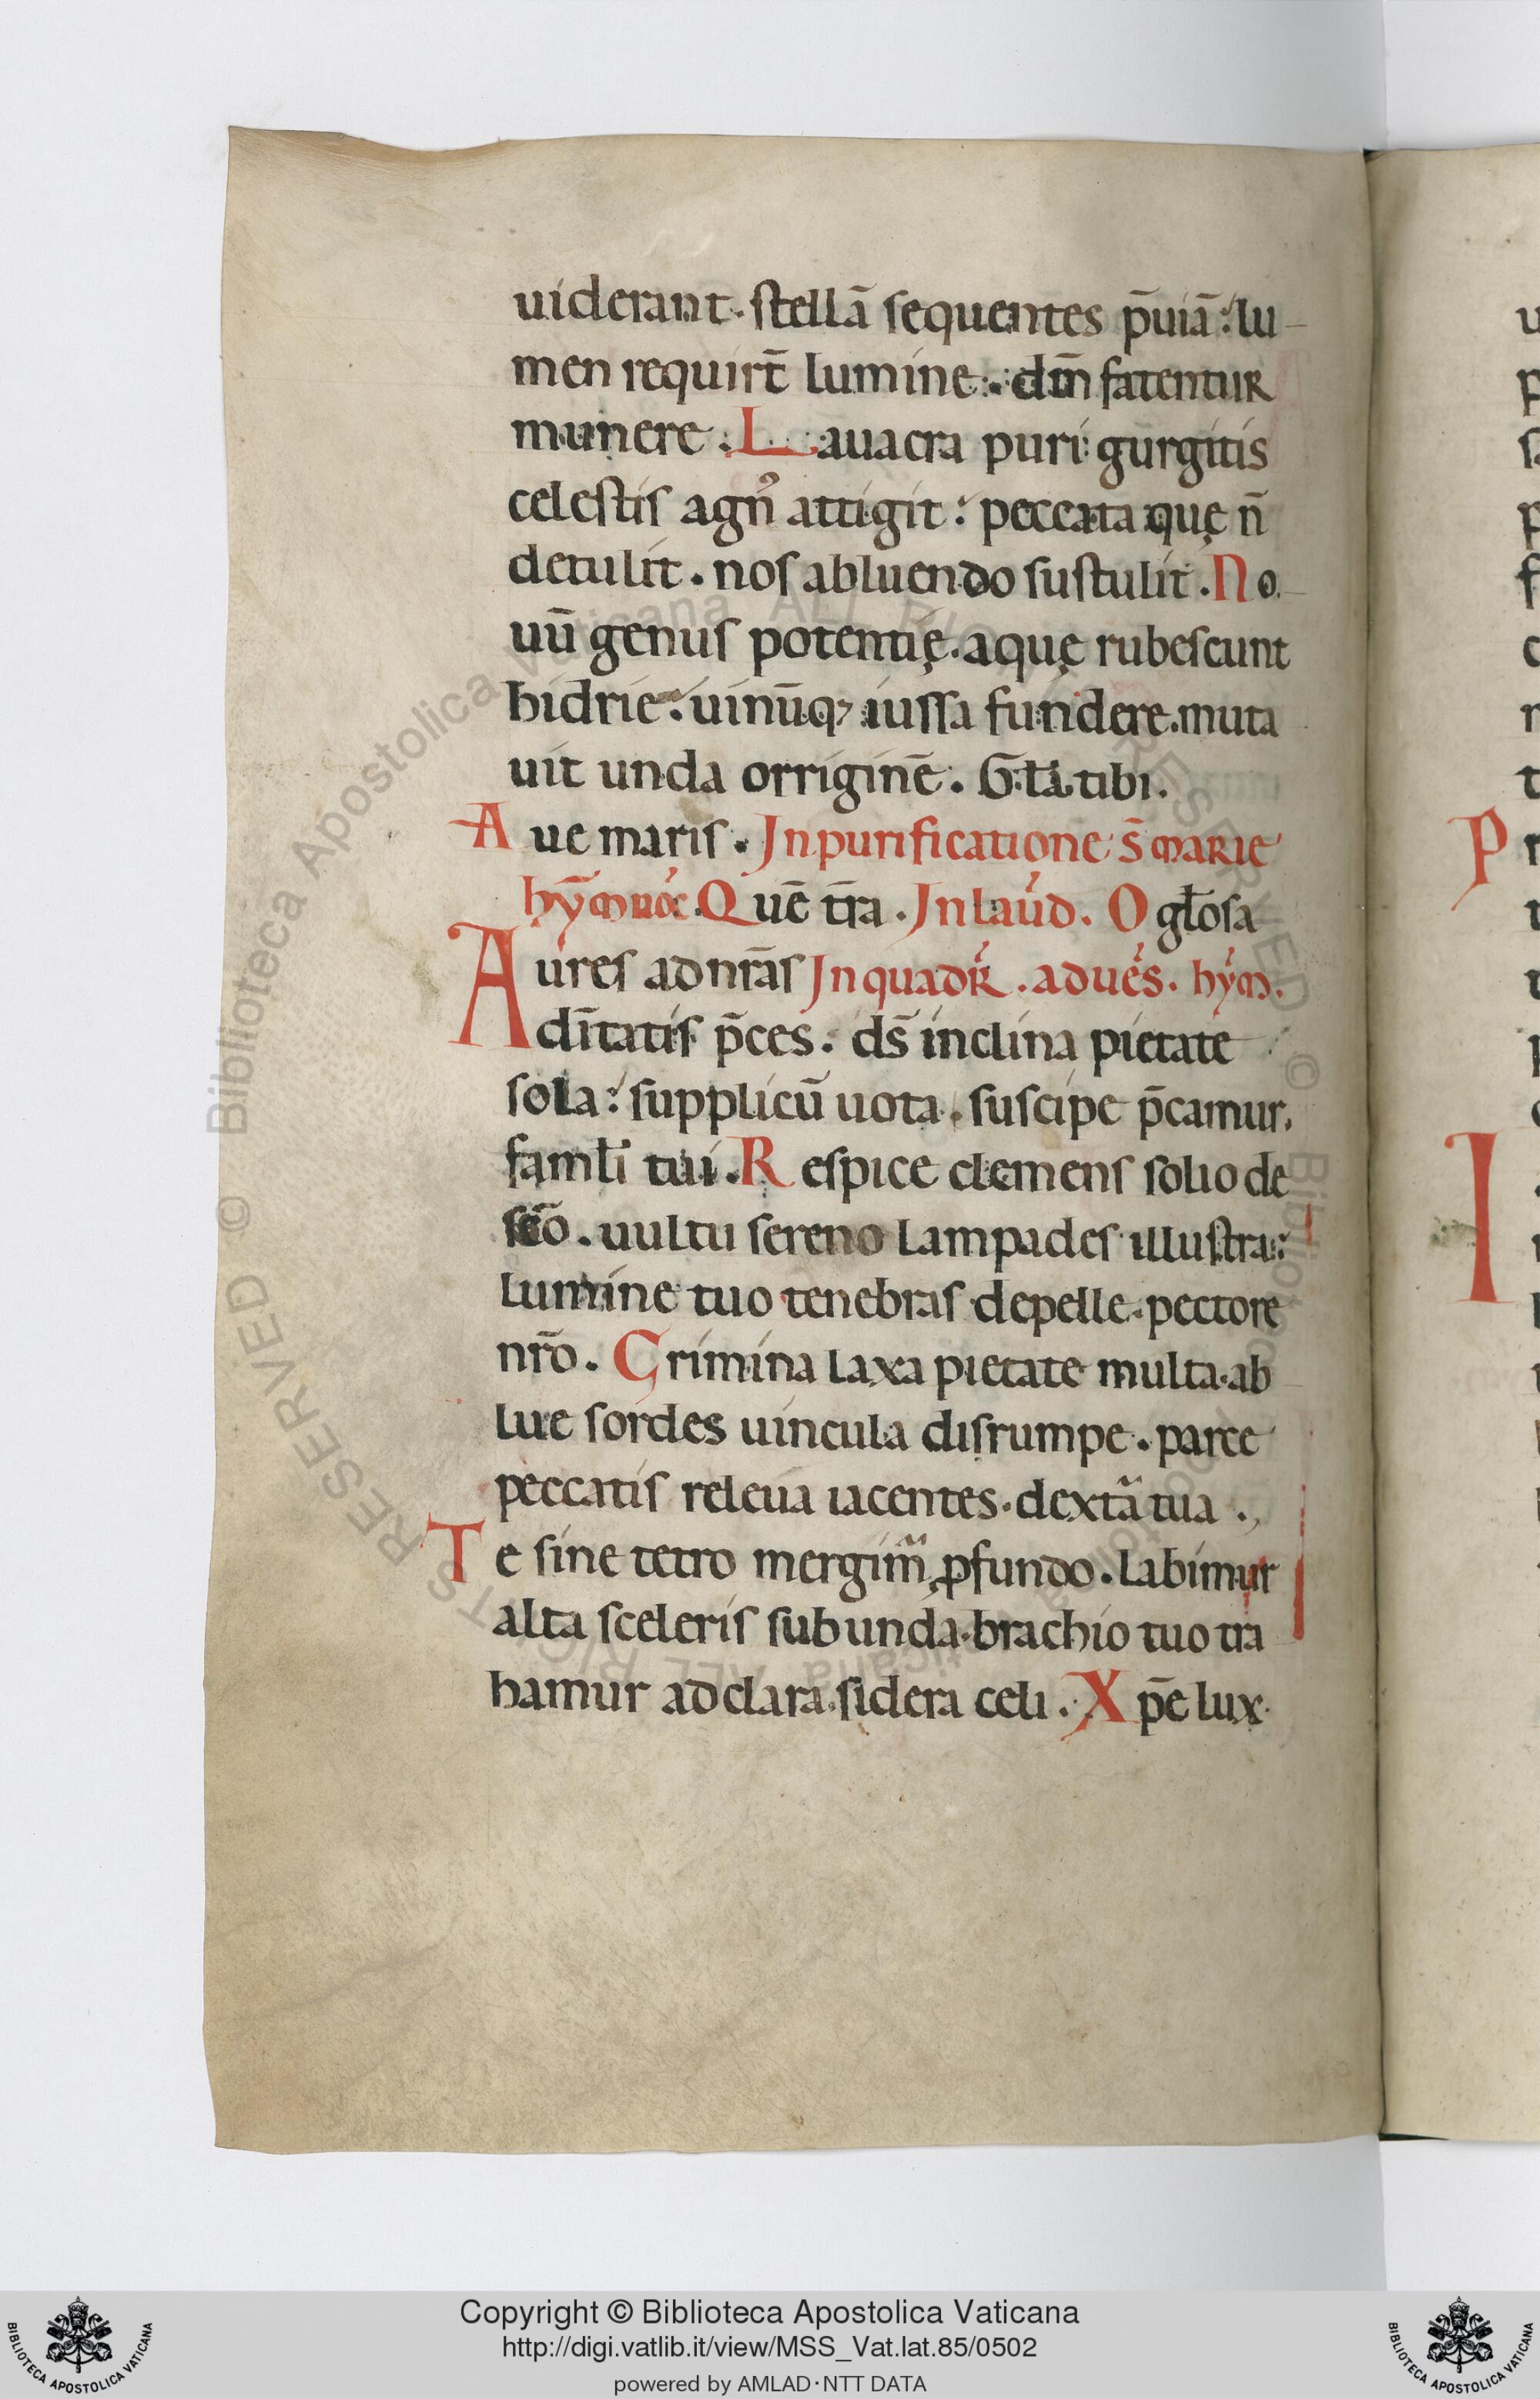 uiderant. stellā sequentes p̄uiā: lu
men requirt̄ lumine. dm̄ fatentur
munere. Lauacra puri gurgitis
celestis agn᷒ attigit: peccata quę n̄
detulit. nos abluendo sustulit. No
uū genus potentię. aquę rubescunt
hidrie. uinūq; iussa fundere. muta
uit unda orriginē. Gła tibi.
Aue maris. Jn purificatione s̄ marie
hȳmnꝰ. Quē tr̄a. Jn laud. O głosa
Jn quadr̄. ad ues. hym.
Aures ad nr̄as
dīitatis p̄ces. ds̄ inclina pietate
sola: supplicū uota. suscipe p̄camur.
famłi tui. Respice clemens solio de
sc̄o. uultu sereno lampades illustra:
lumine tuo tenebras depelle. pectore
nr̄o. Crimina laxa pietate multa. ab
lue sordes uincula disrumpe. parce
peccatis releua iacentes. dextͣa tua.
Te sine tetro mergim᷒ ꝓfundo. labimur
alta sceleris sub unda. brachio tuo tra
hamur ad clara. sidera celi. Xp̄e lux
Copyright © Biblioteca Apostolica Vaticana
http://digi.vatlib.it/view/MSS_Vat.lat.85/0502
powered by AMLAD·NTT DATA
BIBLIOTECA APOSTOLICA VATICANA
BIBLIOTECA APOSTOLICA VATICANA